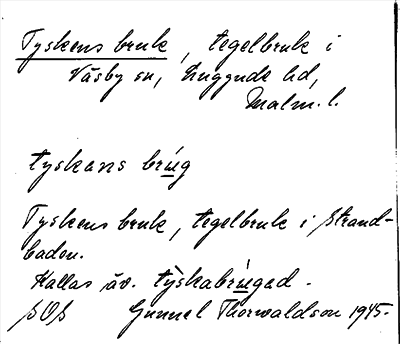 Tyskens bruk, tegelbruk i
Väsby sn, Luggude hd,
Malm. l.
tyskans brúg
Tyskens bruk, tegelbruk i Strand-
baden.
Kallas äv. týskabrúged.
SOS Gunnel Thorwaldson 1945.